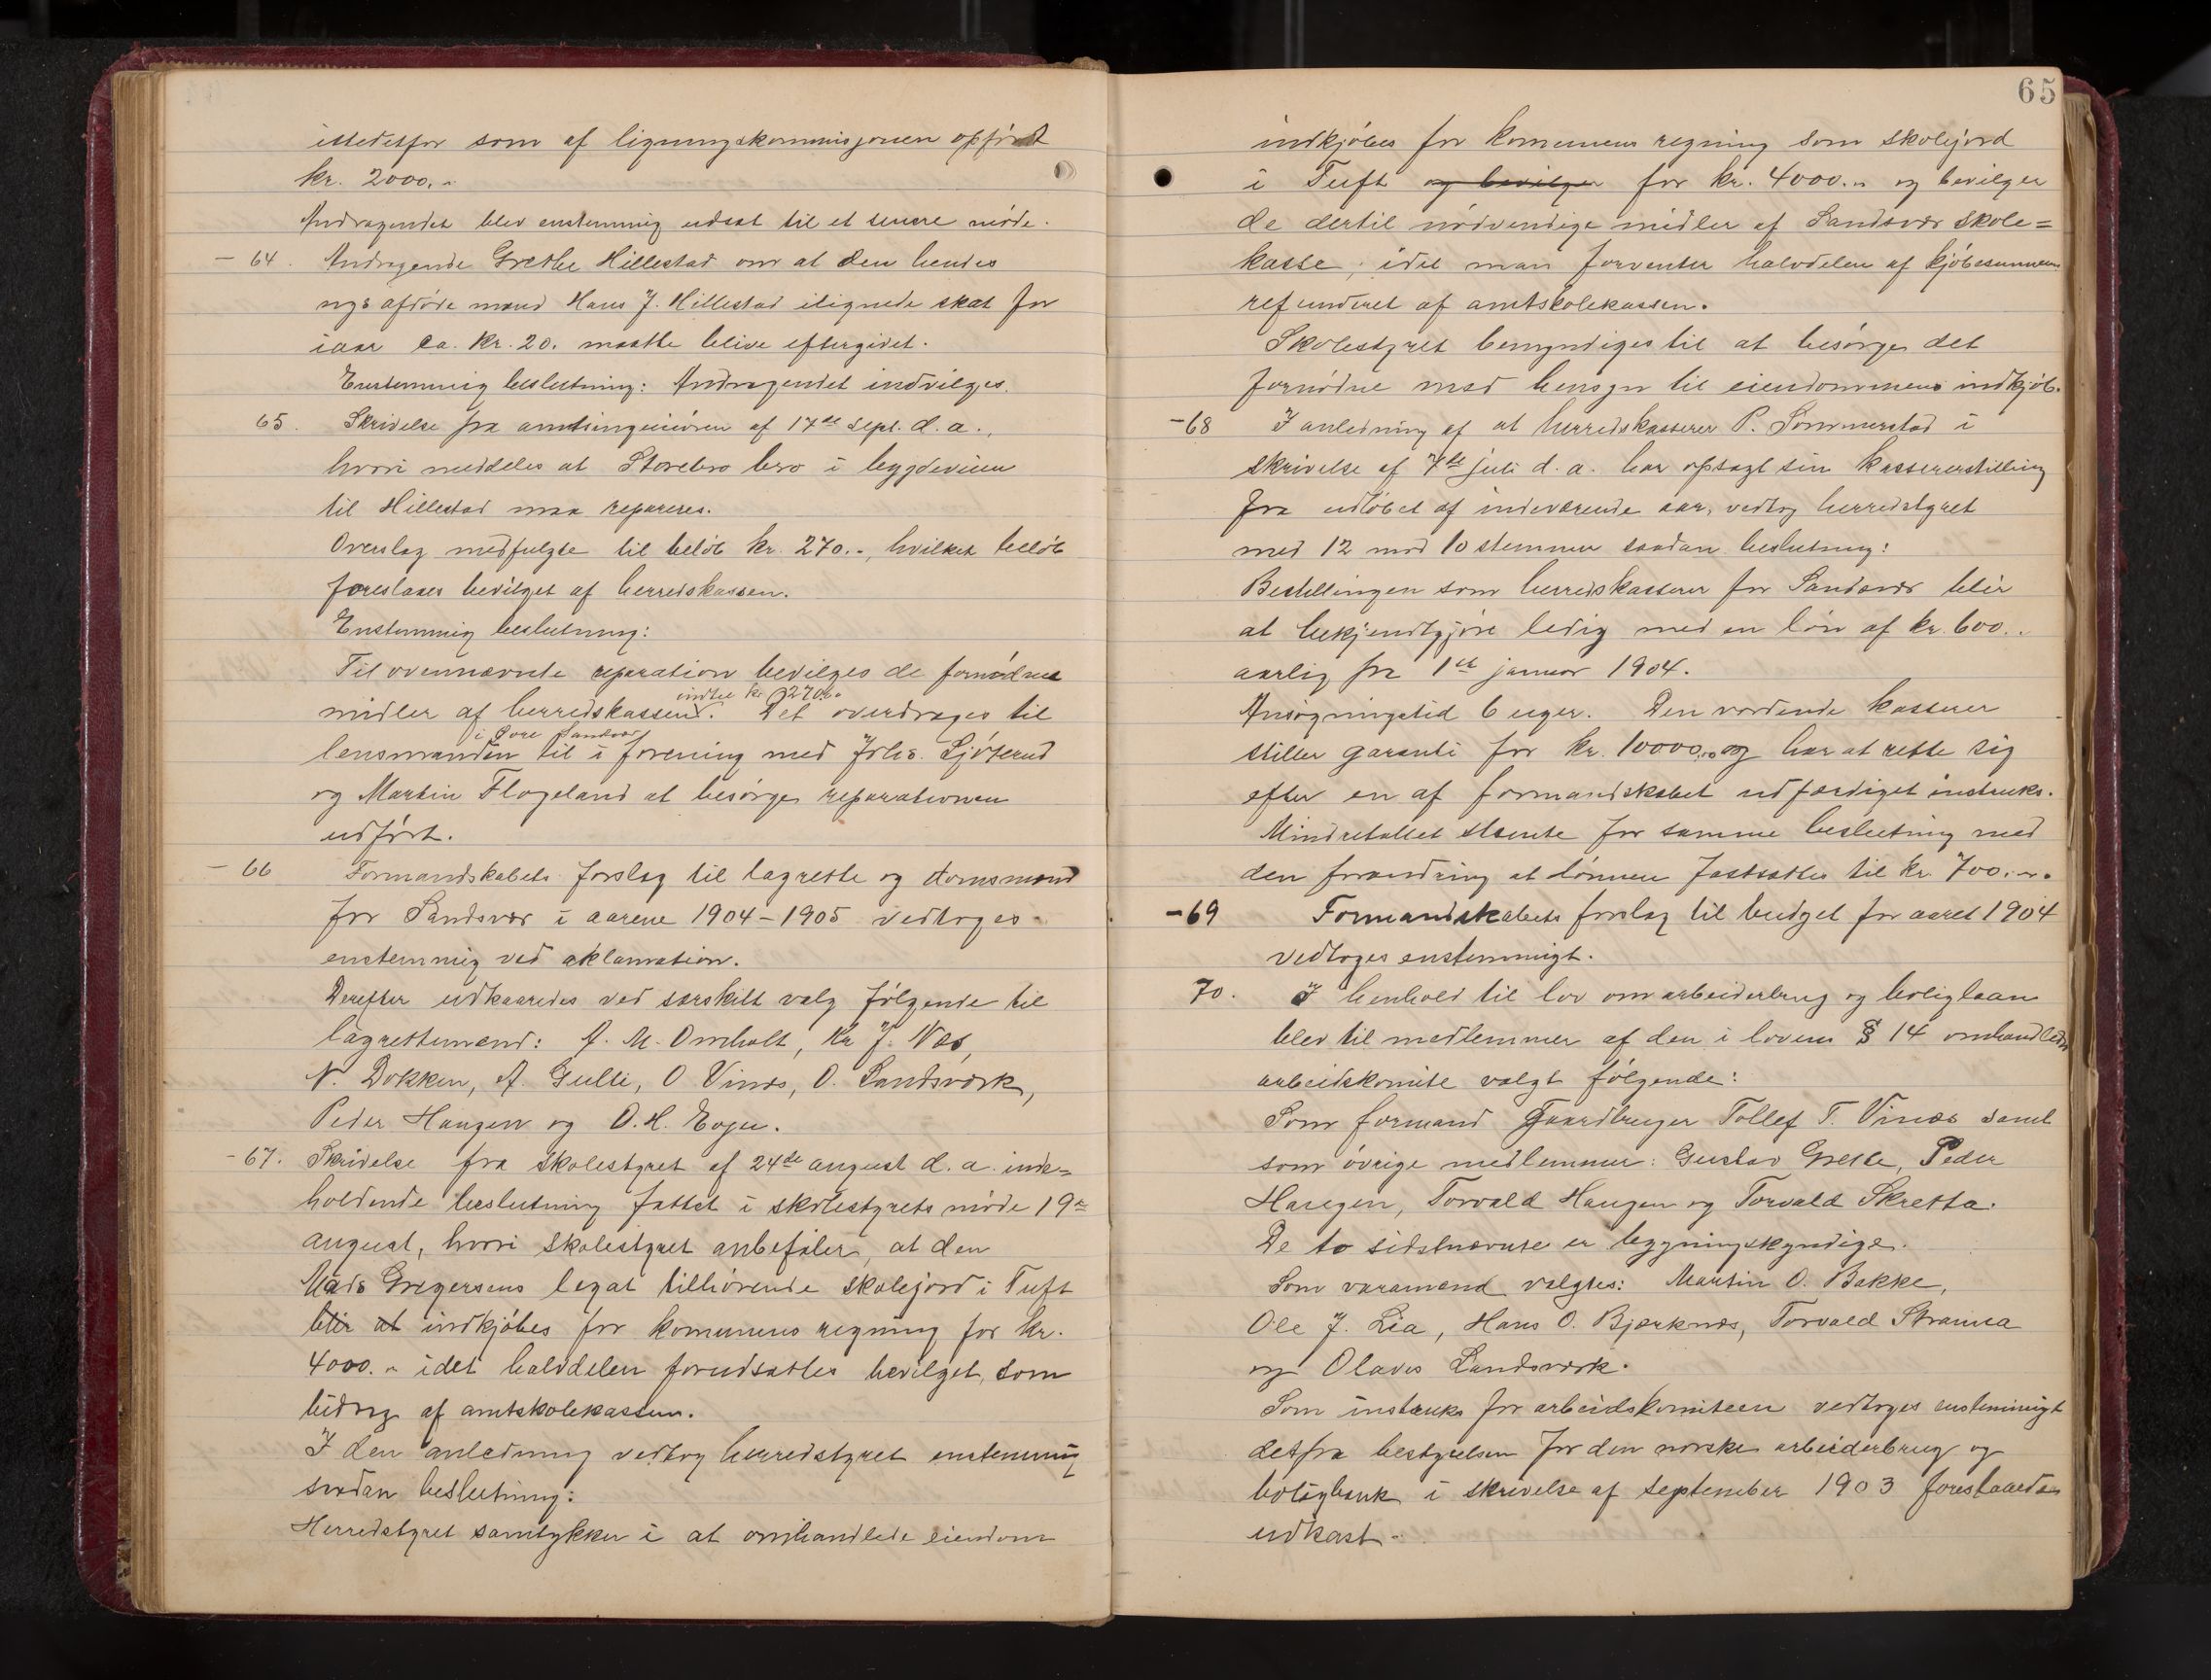 istedetfor som af ligningskommisjonen opført
kr. 2000.-
Andragendet blev enstemmig udsat til et senere møde.
- 64. Andragende Grethe Hillestad om at den hendes
nys afdøde mand Hans J. Hillestad ilignede skat for
iaar ca. kr. 20. maatte blive eftergivet.
Enstemmig beslutning: Andragendet indvilges.
65. Skrivelse fra amtsingeniøren af 17de sept. d. a.,
hvori meddeles at Storebro bro i bygdeveien
til Hillestad maa repareres.
Overslag medfulgte til beløb kr. 270.-, hvilket beløb
foreslaaes bevilget af herredskassen.
Enstemmig beslutning:
Til ovennævnte reparation bevilges de fornødne
indtil kr. 270.-
midler af herredskassen. Det overdrages til
i Søre Sandsvær
lensmanden til i forening med Johs. Sjøterud
og Martin Flogeland at besørge reparationen
udført.
- 66 Formandskabets forslag til lagrette og domsmænd
for Sandsvær i aarene 1904-1905 vedtoges
enstemmig ved aklamation.
Derefter udkaaredes ved særskilt valg følgende til
lagrettemænd: A. M. Omholt, Kr. J. Næs,
N. Dokken, A. Gulli, O Vinæs, O. Sandsværk,
Peder Haugen og O. H.
- 67. Skrivelse fra skolestyret af 24de august d. a. inde=
holdende beslutning fattet i skolestyrets møde 19de
august, hvori skolestyret anbefaler, at den
Mads Gregersens legat tilhørende skolejord i Tuft
blir at indkjøbes for komunens regning for kr.
4000.- idet halvdelen forudsættes bevilget som
bidrag af amtskolekassen.
I den anledning vedtog herredstyret enstemmig
saadan beslutning:
Herredstyret samtykker i at omhandlede eiendom
65
indkjøbes for komunens regning som skolejord
i Tuft og bevilger for kr. 4000.- og bevilger
de dertil nødvendige midler af Sandsvær skole=
kasse, idet man forventer halvdelen af kjøbesummen
refunderet af amtskolekassen.
Skolestyret bemyndiges til at besørge det
fornødne med hensyn til eiendommens indkjøb.
- 68 I anledning af at herredskasserer P. Sommerstad i
skrivelse af 7de juli d. a. har opsagt sin kassererstilling
fra udløbet af indeværende aar, vedtog herredstyret
med 12 mod 10 stemmer saadan beslutning:
Bestillingen som herredskasserer for Sandsvær blir
at bekjendtgjøre ledig med en løn af kr. 600.-
aarlig fra 1ste januar 1904.
Ansøgningstid 6 uger. Den vordende kasserer
stiller garanti for kr. 10000.- og har at rette sig
efter en af formandskabet udfærdiget instruks.
Mindretallet stemte for samme beslutning med
den forandring at lønnen fastsættes til kr. 700.-.
- 69 Formandskabets forslag til budget for aaret 1904
vedtoges enstemmigt.
70. I henhold til lov om arbeiderbrug og boliglaan
blev til medlemmer af den i lovens § 14 omhandlede
arbeidskomite valgt følgende:
Som formand Gaardbruger Tollef T. Vinæs samt
som øvrige medlemmer: Gustav Greske, Peder
Haugen, Torvald Haugen og Torvald Skretta.
De to sidstnævnte er bygningskyndige.
Som varamænd valgtes: Martin O. Bakke,
Ole J. Lia, Hans O. Bjørknæs, Torvald
og Olaves Sandsværk.
Som instruks for arbeidskomiteen vedtoges enstemmigt
det fra bestyrelsen for den norske arbeiderbrug og
boligbank i skrivelse af september 1903 foreslaaede
udkast.-